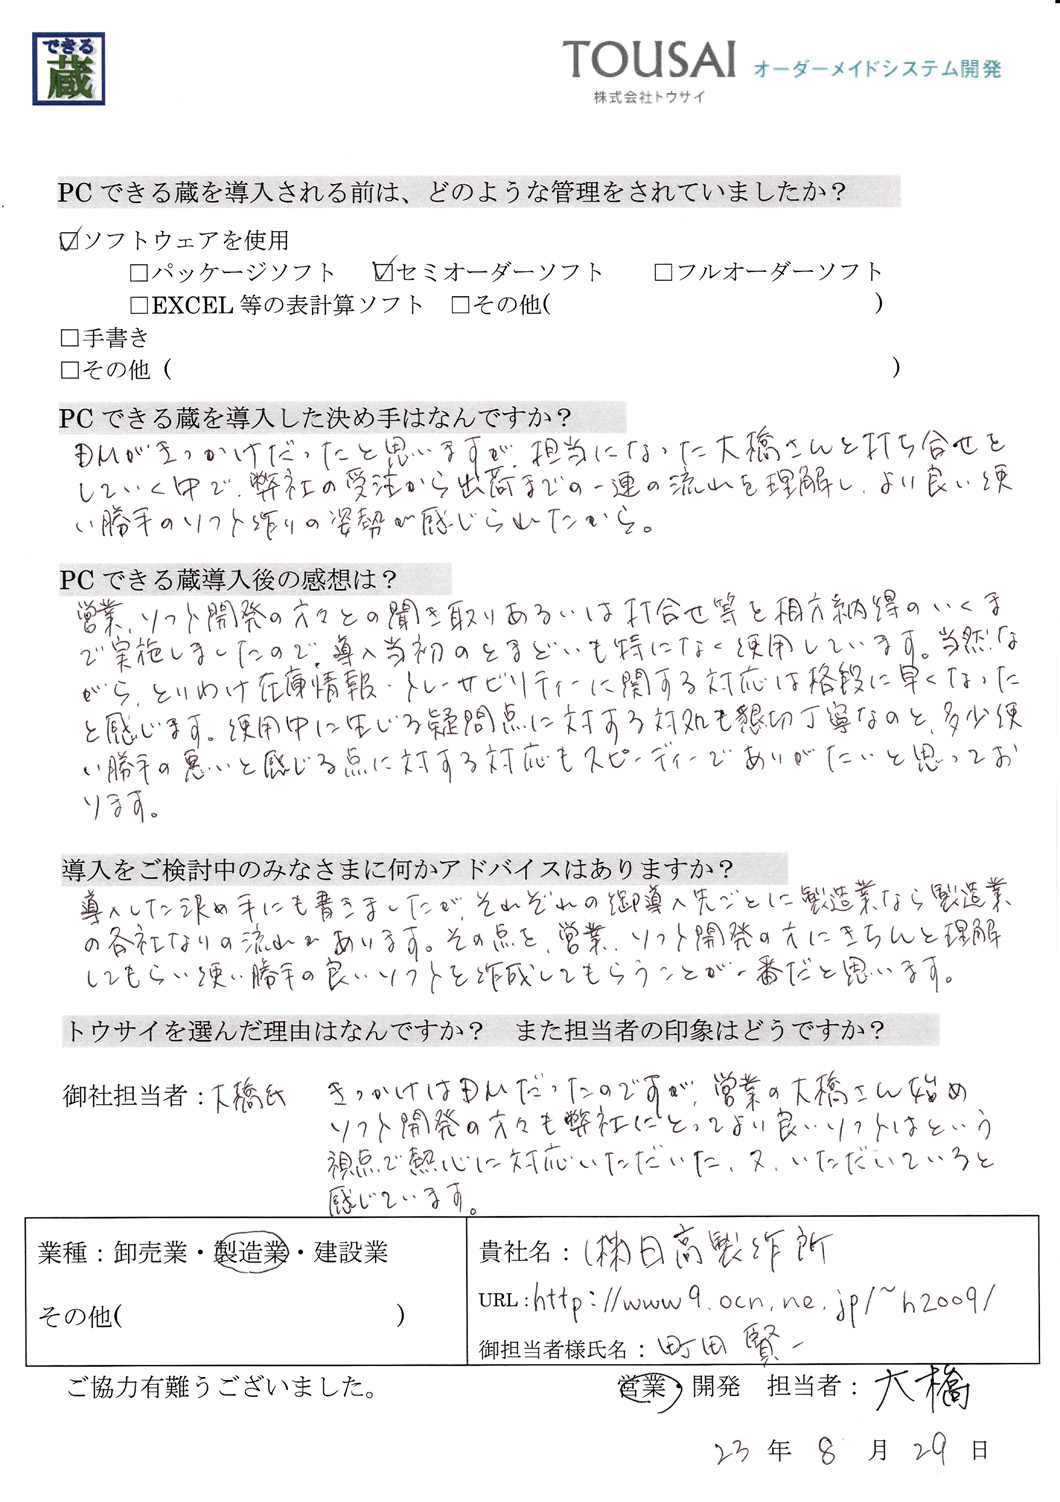 できる
蔵
TOUSAI オーダーメイドシステム開発
株式会社トウサイ
PCできる蔵を導入される前は、どのような管理をされていましたか？
☑ソフトウェアを使用
□パッケージソフト ☑セミオーダーソフト □フルオーダーソフト
□EXCEL等の表計算ソフト □その他( )
□手書き
□その他 ( )
PCできる蔵を導入した決め手はなんですか？
DMがきっかけだったと思いますが、担当になった大橋さんと打ち合せを
していく中で、弊社の受注から出荷までの一連の流れを理解し、より良い使
い勝手のソフト作りの姿勢が感じられたから。
PCできる蔵導入後の感想は？
営業、ソフト開発の方々との聞き取りあるいは打合せ等を相方納得のいくま
で実施しましたので、導入当初のとまどいも特になく使用しています。当然な
がら、とりわけ在庫情報・トレーサビリティーに関する対応は格段に早くなった
と感じます。使用中に生じる疑問点に対する対処も懇切丁寧なのと、多少使
い勝手の悪いと感じる点に対する対応もスピーディーでありがたいと思ってお
ります。
導入をご検討中のみなさまに何かアドバイスはありますか？
導入した決め手にも書きましたが、それぞれの御導入先ごとに製造業なら製造業
の各社なりの流れがあります。その点を、営業、ソフト開発の方にきちんと理解
してもらい使い勝手の良いソフトを作成してもらうことが一番だと思います。
トウサイを選んだ理由はなんですか？ また担当者の印象はどうですか？
御社担当者：大橋氏 きっかけはDMだったのですが、営業の大橋さん始め
ソフト開発の方々も弊社にとってより良いソフトはという
視点で熱心に対応いただいた、又、いただいていると
感じています。
業種：卸売業・製造業・建設業
その他( )
貴社名：(株)日高製作所
URL：http://www9.ocn.ne.jp/~h2009/
御担当者様氏名：町田 賢一
ご協力有難うございました。
営業・開発 担当者：大橋
23年8月29日